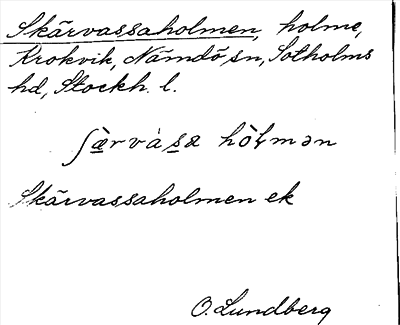 Skärvassaholmen, holme,
Krokvik, Nämdö sn, Sotholms
hd, Stockh. l.
ʃæ̀rvàsa hòɫmən
Skärvassaholmen ek
O. Lundberg